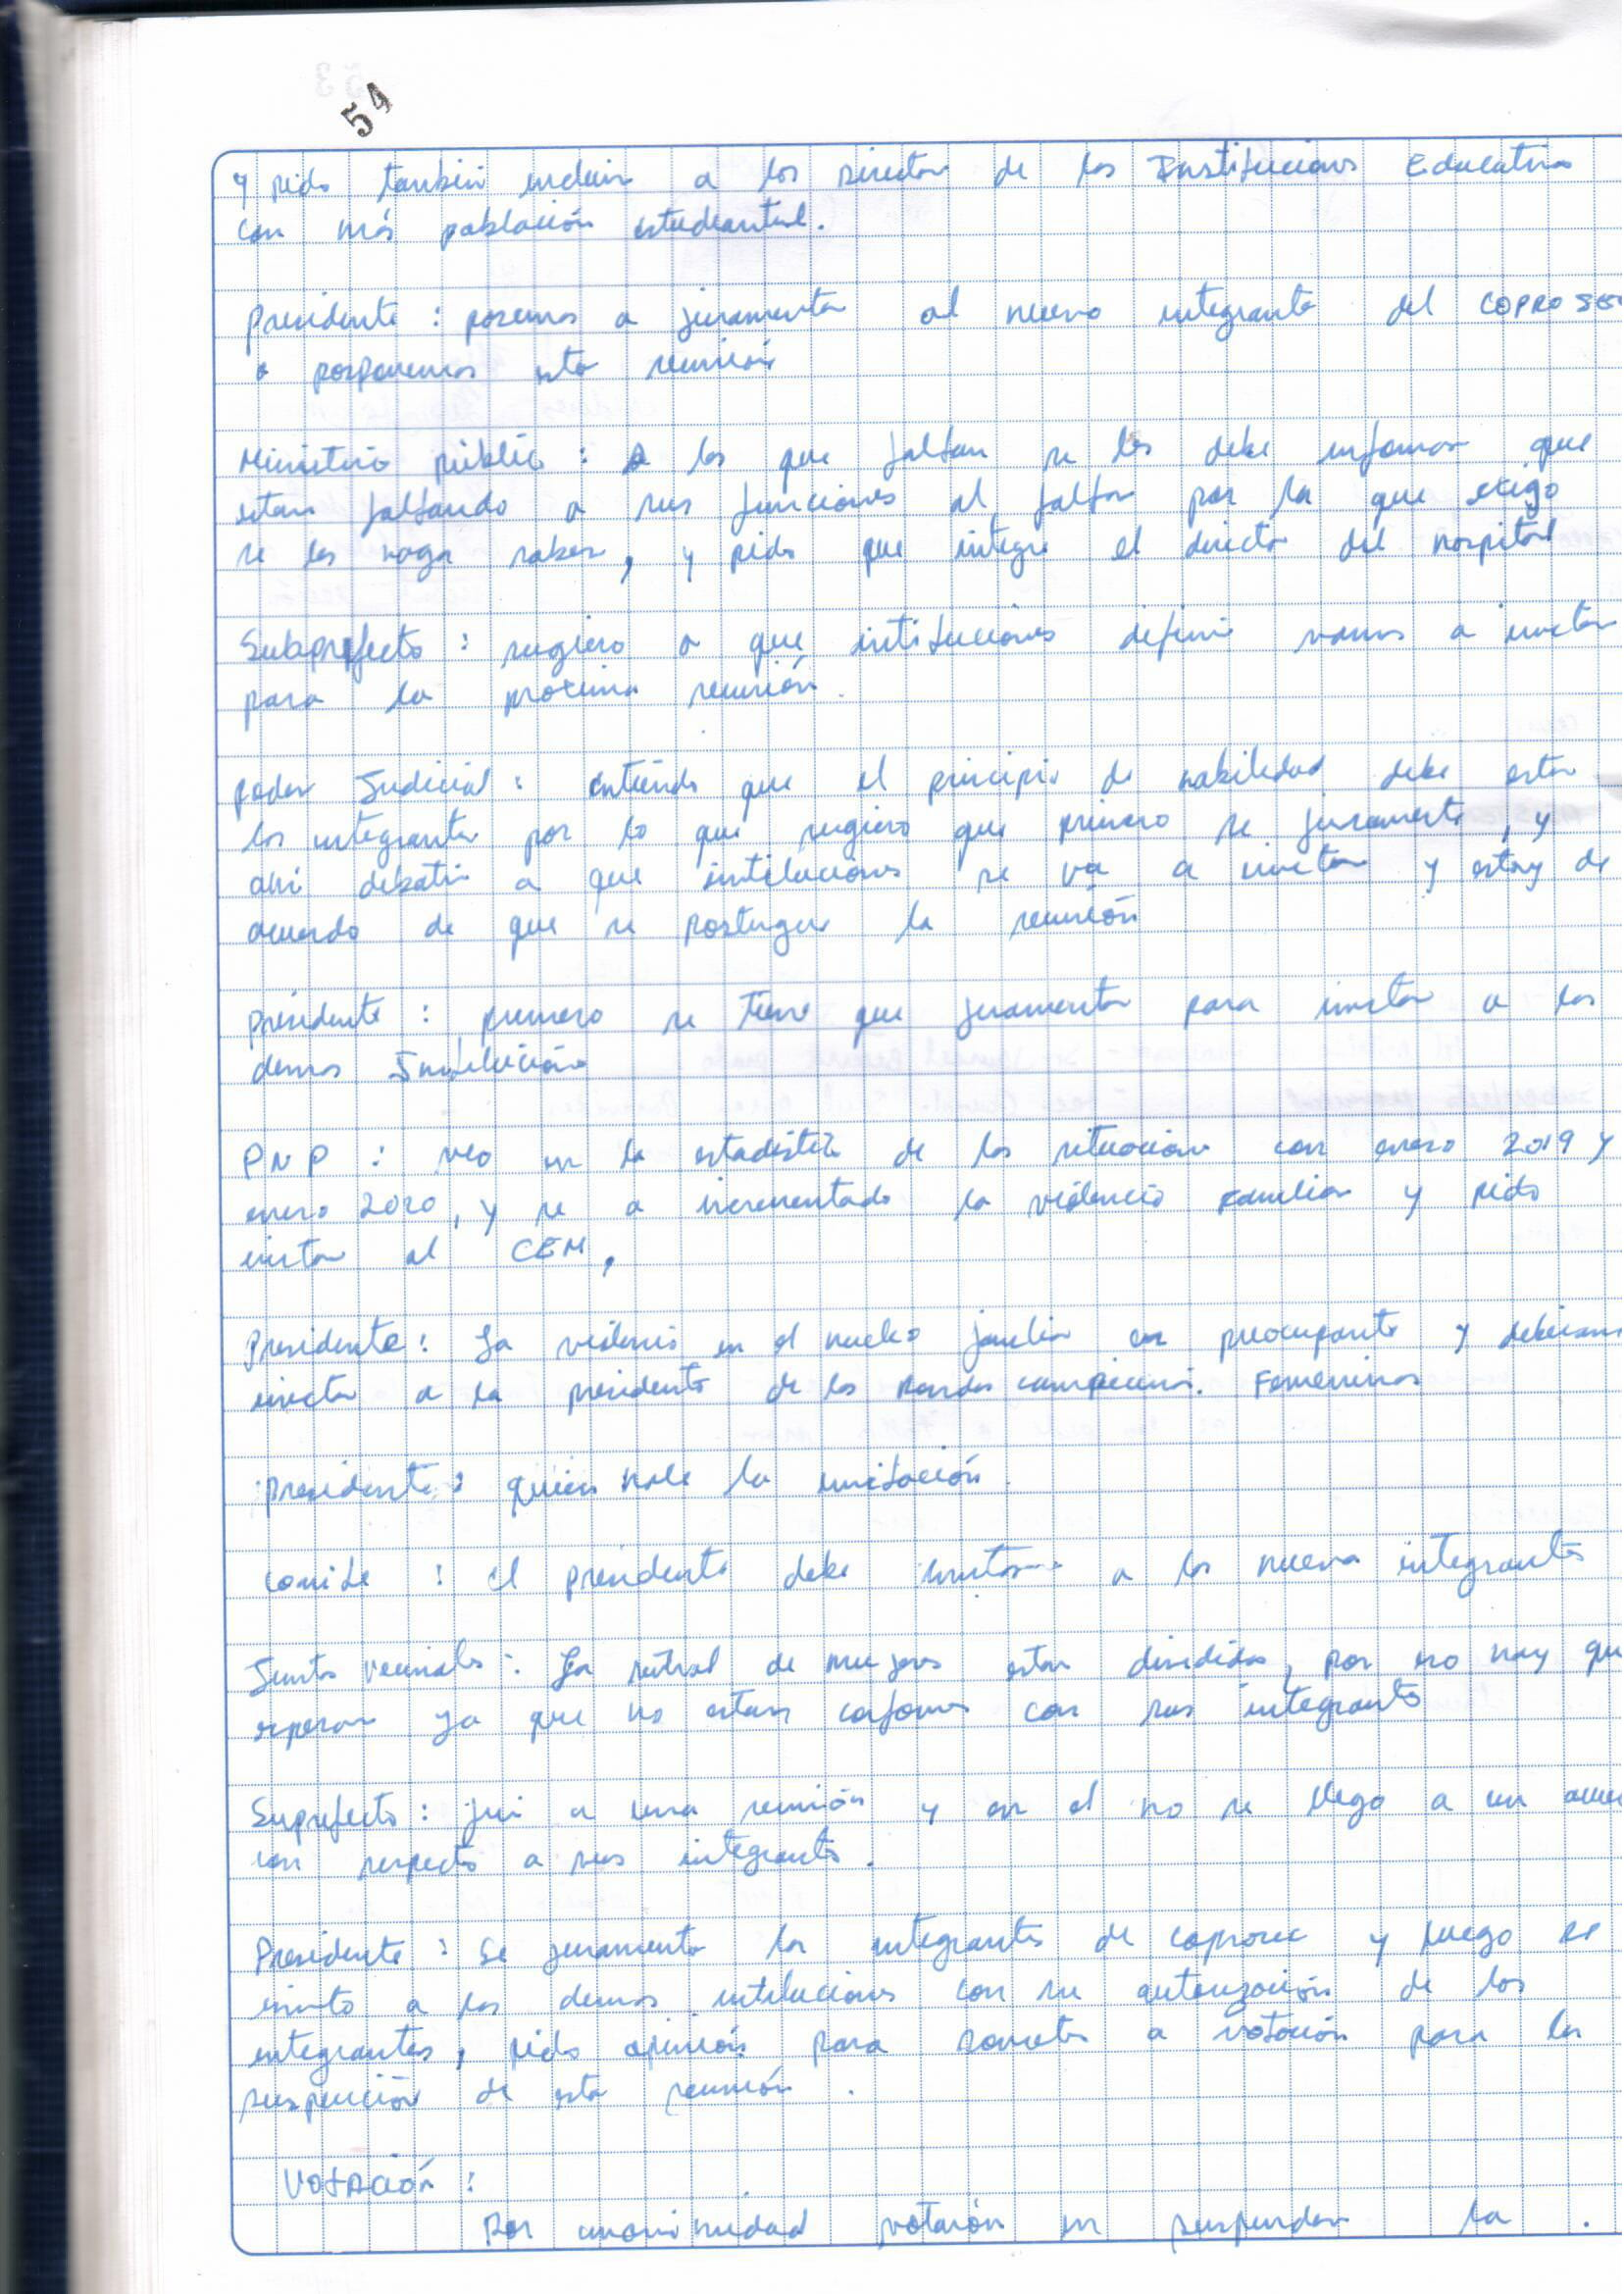 54
y pido también incluir a los Director de las Instituciones Educativas
con más población estudiantil.
presidente : pasemos a juramentar al nuevo integrante del COPROSEC
o posponemos esta reunión
Ministerio público : A los que faltan se les debe informar que
estan faltando a sus funciones al faltar por la que exigo
se les haga saber, y pido que integre el director del hospital
Subprefecto : sugiero a que instituciones definir vamos a invitar
para la proxima reunión.
poder Judicial : entiendo que el principio de habilidad debe estar
los integrantes por lo que sugiero que primero se juramente, y
ahi debatir a que instituciones se va a invitar y estoy de
acuerdo de que se postergue la reunión
presidente : primero se tiene que juramentar para invitar a las
demas Institución
PNP : veo en la estadistica de las situacion con enero 2019 y
enero 2020, y se a incrementado la violencia familiar y pido
invitar al CEM,
Presidente : La violencia en el nucleo familiar es preocupante y debemos
invitar a la presidenta de las Rondas campesinas. Femeninas
presidente : quien hace la invitación.
comite : el presidente debe invitar a los nuevos integrantes
Juntas vecinales : La central de mujeres estan divididas, por eso hay que
esperar ya que no estan conformes con sus integrantes
Suprefecto : fui a una reunión y en el no se llego a un acuer
con respecto a sus integrantes.
Presidente : Se juramenta los integrantes de coprosec y luego se
invita a las demas intituciones con su autorización de los
integrantes, pido opinión para someter a votación para la
suspención de esta reunión.
VOTACIÓN :
Por unanimidad votarón en suspender la .